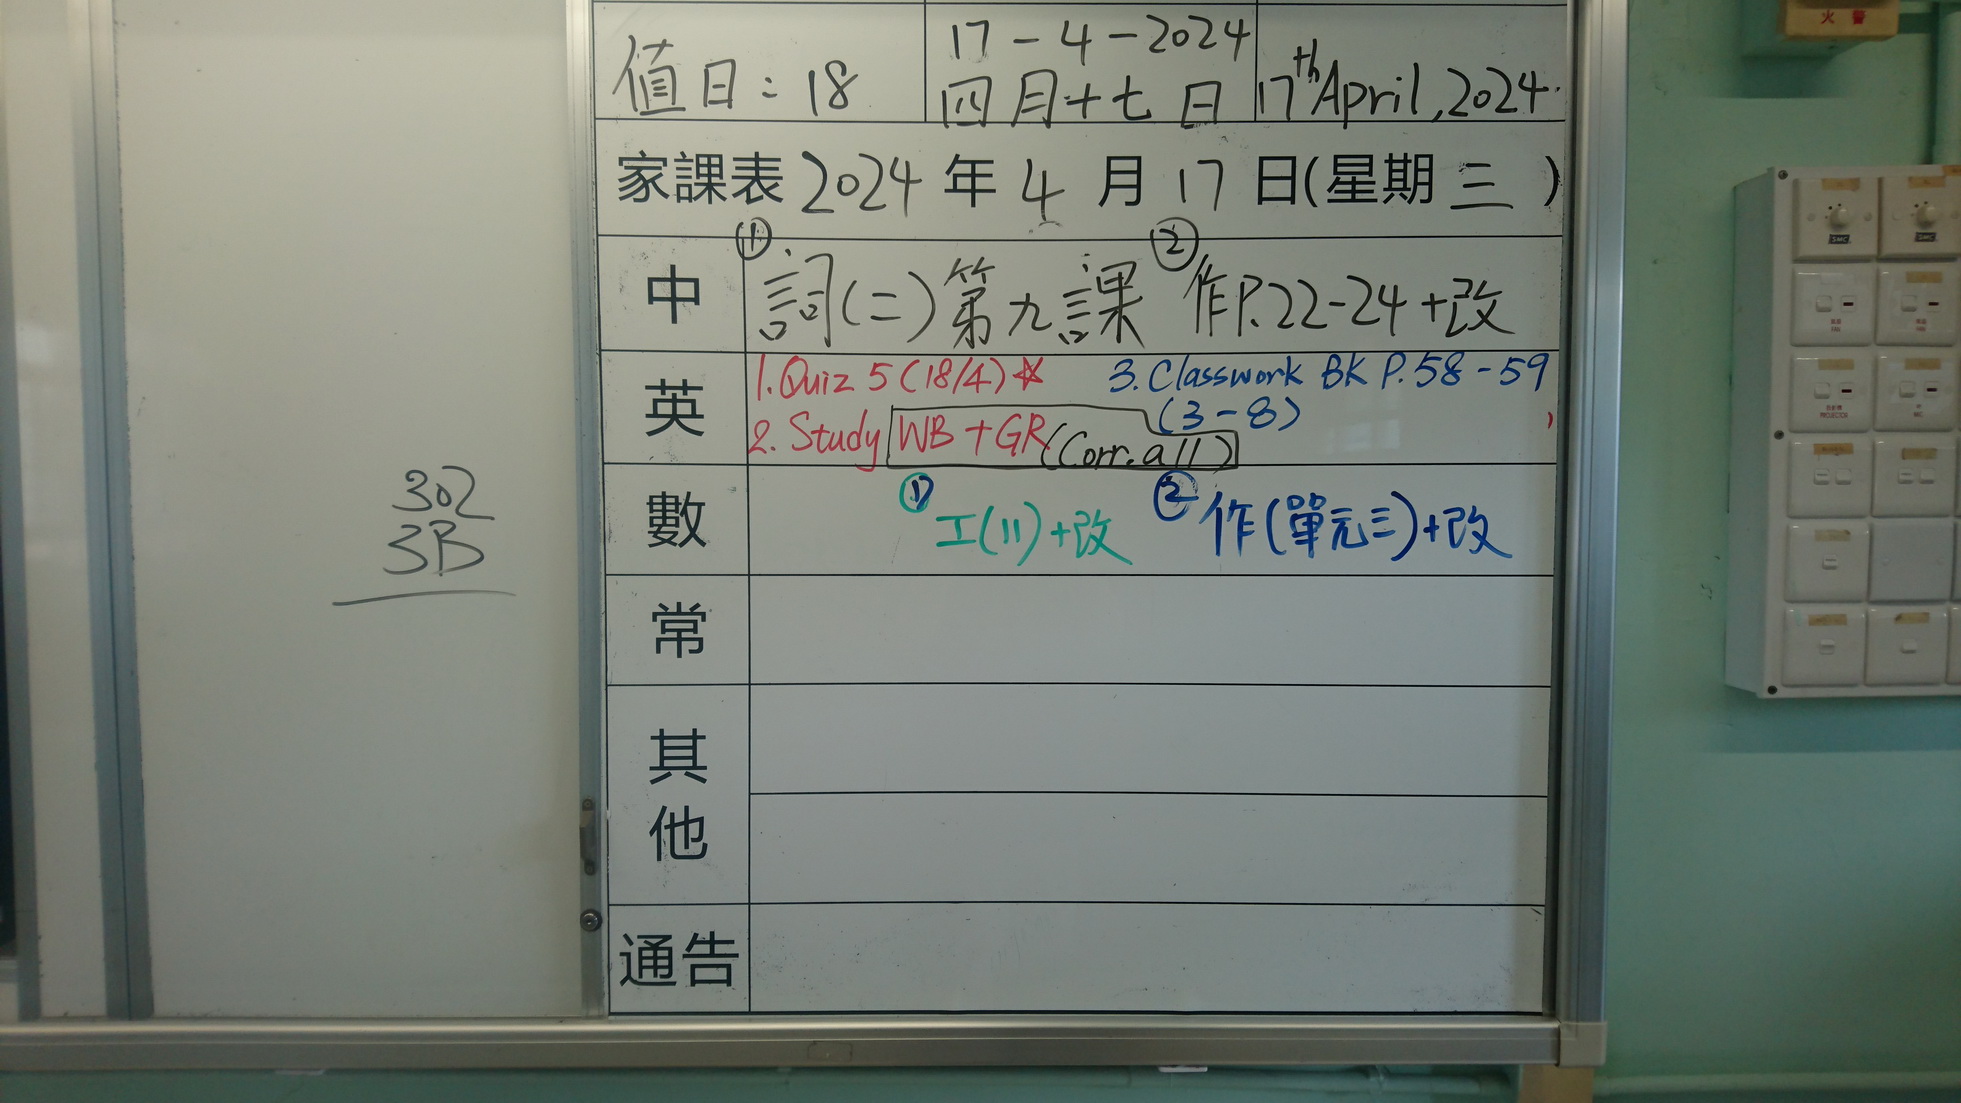 302
3B
值日：18
17-4-2024
四月十七日
17th April, 2024.
家課表 2024 年 4 月 17 日(星期 三 )
中
① 詞(二)第九課 ② 作P.22-24+改
英
1. Quiz 5 (18/4) ☆
2. Study WB + GR (Corr. all)
3. Classwork BK P.58-59
(3-8)
數
① 工(11)+改 ② 作(單元三)+改
常
其他
通告
火警